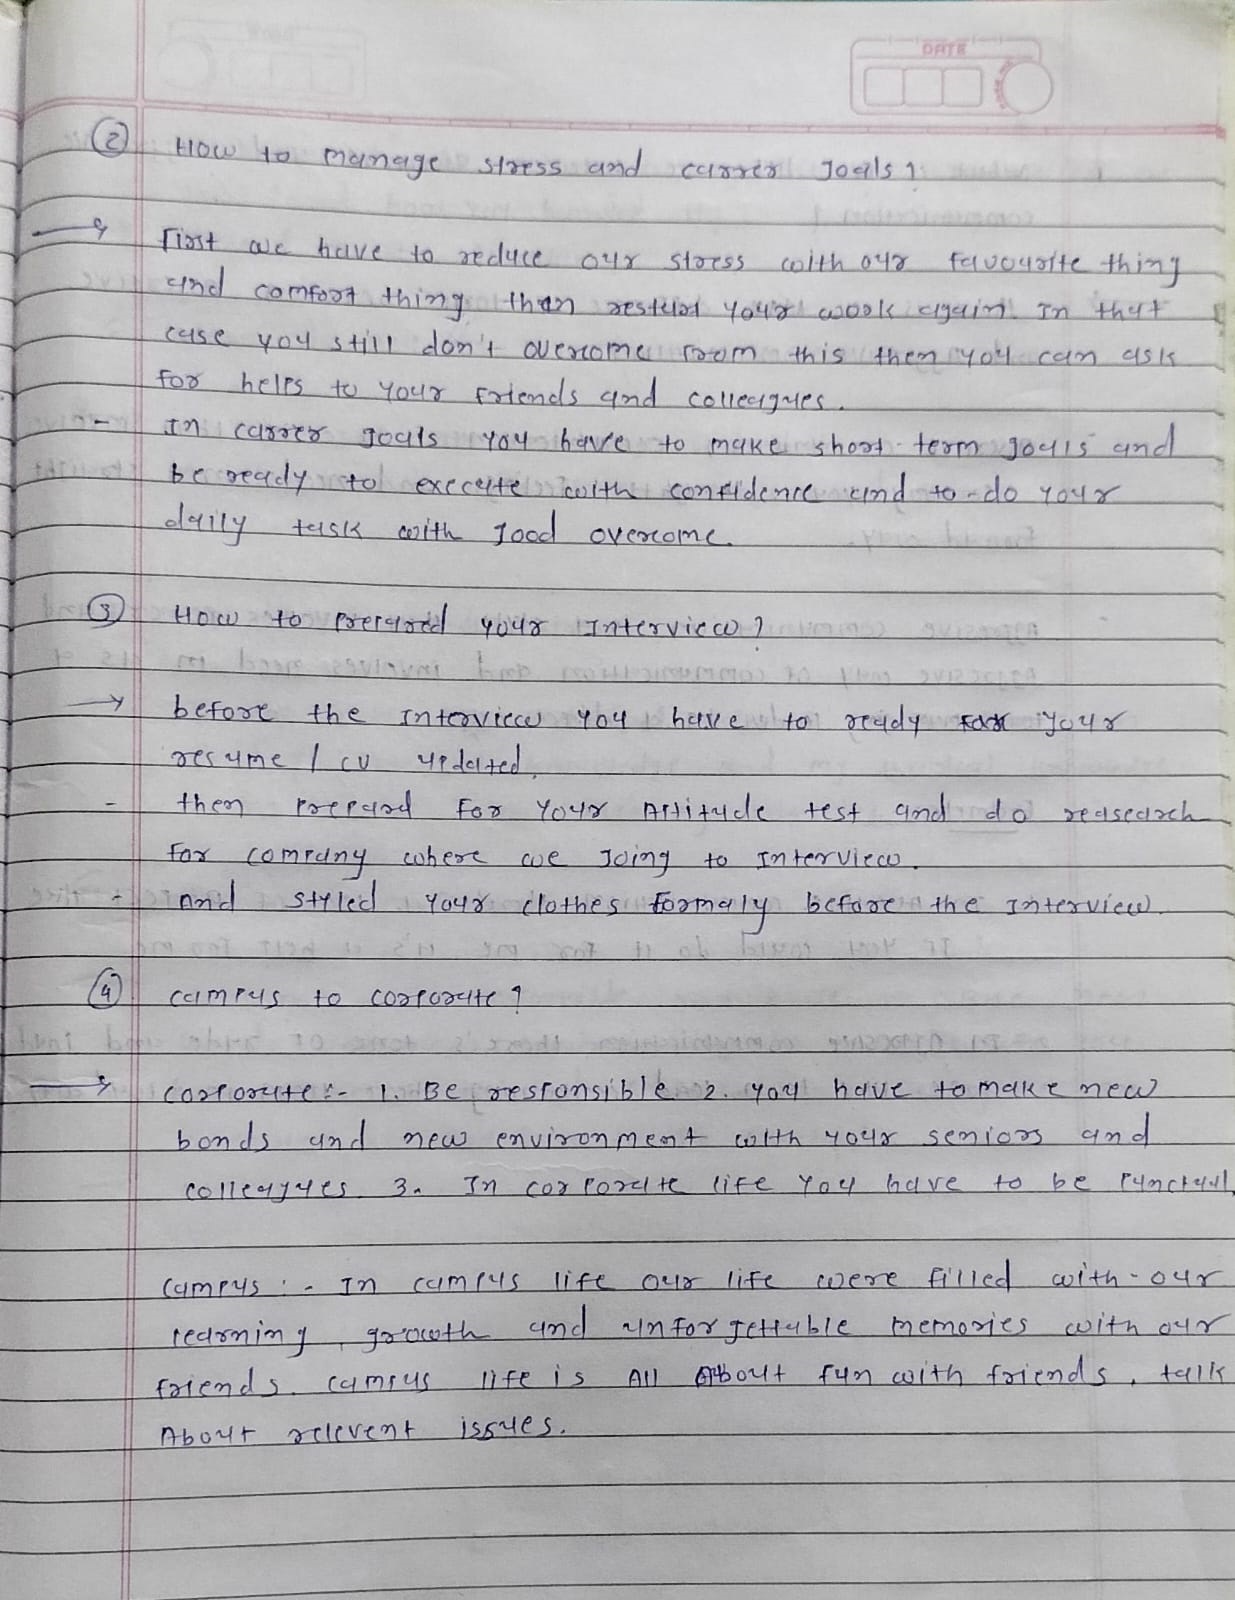 DATE
② How to manage stress and carrer goals?
→ First we have to reduce our stress with our favourite thing
and comfort thing then restart your work again. In that
case you still don't overcome from this then you can ask
for helps to your friends and colleagues.
- In carrer goals you have to make short-term goals and
be ready to execute with confidence and to-do your
daily task with good overcome.
③ How to prepared your Interview?
→ before the Interview you have to ready for your
resume / cv updated.
- then prepard for your Attitude test and do reasearch
for company where we going to interview.
- And styled your clothes formaly before the interview.
④ campus to corporate?
→ corporate :- 1. Be responsible 2. you have to make new
bonds and new environment with your seniors and
colleagues. 3. In corporate life you have to be punctual.
campus :- In campus life our life were filled with-our
learning, growth and unforgettable memories with our
friends. campus life is All About fun with friends, talk
About relevent issues.